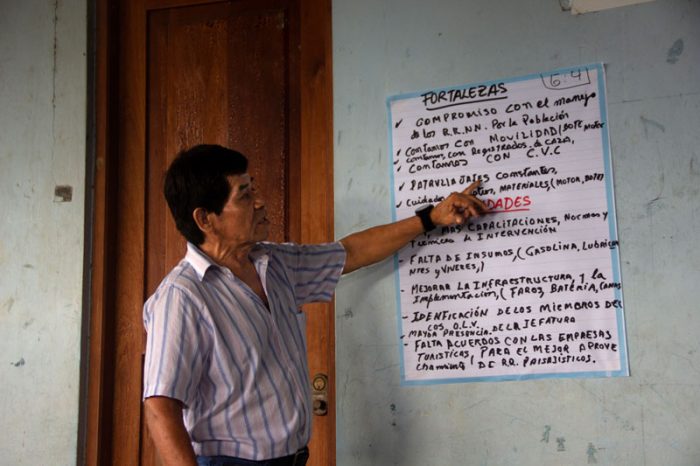 6:4
FORTALEZAS
✓ COMPROMISO CON el manejo
de los R.R.N.N. Por la Población
✓ Contamos con MOVILIDAD/BOTE, Motor
contamos, con Registrados de CAZA,
✓ CONTAMOS CON C.V.C
✓ PATRULLAJES constantes,
✓ Cuidado MATERIALES, (MOTOR, BOTE)
DADES
MAS CAPACITACIONES, Normas y
Técnicas de INTERVENCIÓN
- FALTA DE INSUMOS, (GASOLINA, Lubrica
NTES y VIVERES,)
- MEJORAR LA INFRAESTRUCTURA, Y la
Implementación, (FAROS, BATERÍA,
- IDENFICACIÓN DE LOS MIEMBROS DE
LOS O.L.V.
- MAYOR PRESENCIA DE LA JEFATURA
- FALTA ACUERDOS CON LAS EMPRESAS
TURISTICAS, PARA EL MEJOR APROVE
chamiento DE RR. PAISAJÍSTICOS.